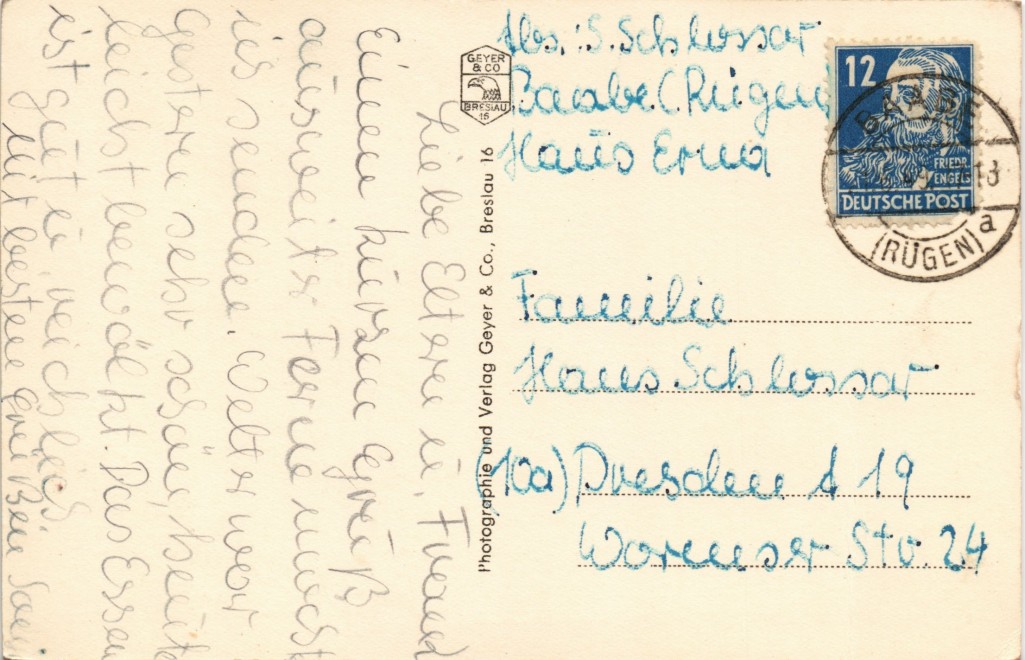 Liebe Eltern u. Frank
Einen kurzen Gruß
aus weiter Ferne möcht
ich senden. Wetter war
Gestern sehr schön, heute
leicht bewölkt. Das Essen
ist gut u. reichlich.
Mit besten Grüßen
GEYER
& CO
BRESLAU
16
Photographie und Verlag Geyer & Co., Breslau 16
Abs.: S. Schlossar
Baabe (Rügen)
Haus Erna
12
FRIEDR
ENGELS
DEUTSCHE POST
BAABE
(RÜGEN) a
Familie
Hans Schlossar
(10a) Dresden A 19
Wormser Str. 24